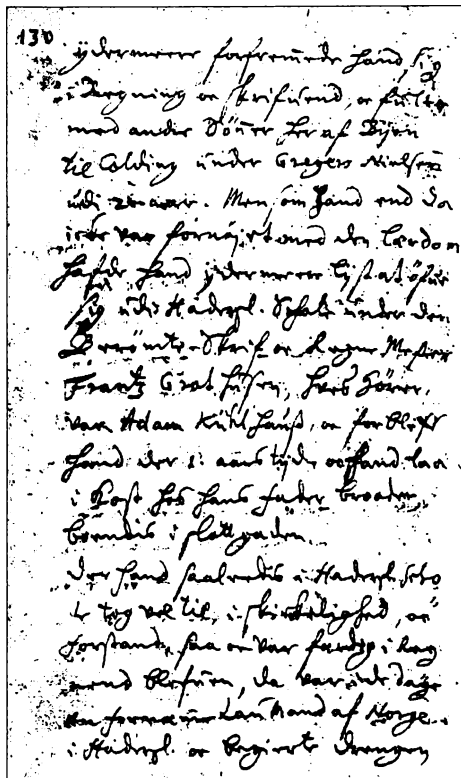 130
ydermeere forfremmede hand sig
i Regning oc skrifuend, oc fulte
med andre Sønner her af Byen
til Colding under Gregers Nielsen
udi 2 aar. Men som hand end da
icke var fornøjet med den Lærdom
hafde hand ydermeere lyst at øfue
sig udi Hadersl. Schole under den
Berømte Skrif oc Regne Mester
Frantz Grothusen, hves Hører,
var Adam Kühl, oc forblef
hand der 1. aars tyde oc hand laa
i Kost hos hans fader broder
boendis i slotts gaden.
Der hand saaledis i Hadersl. Scho
le tog vel til, i skickelighed, oc
forstand, saa oc var færdig i Reg
nend blefuen, da var
en Lau Mand af Norge
i Hadersl. oc begierte drengen